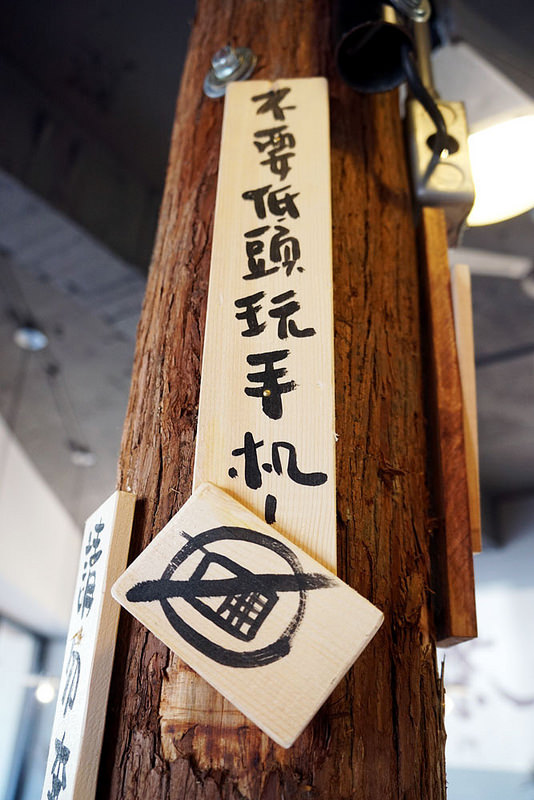 不要低頭玩手机!
勿